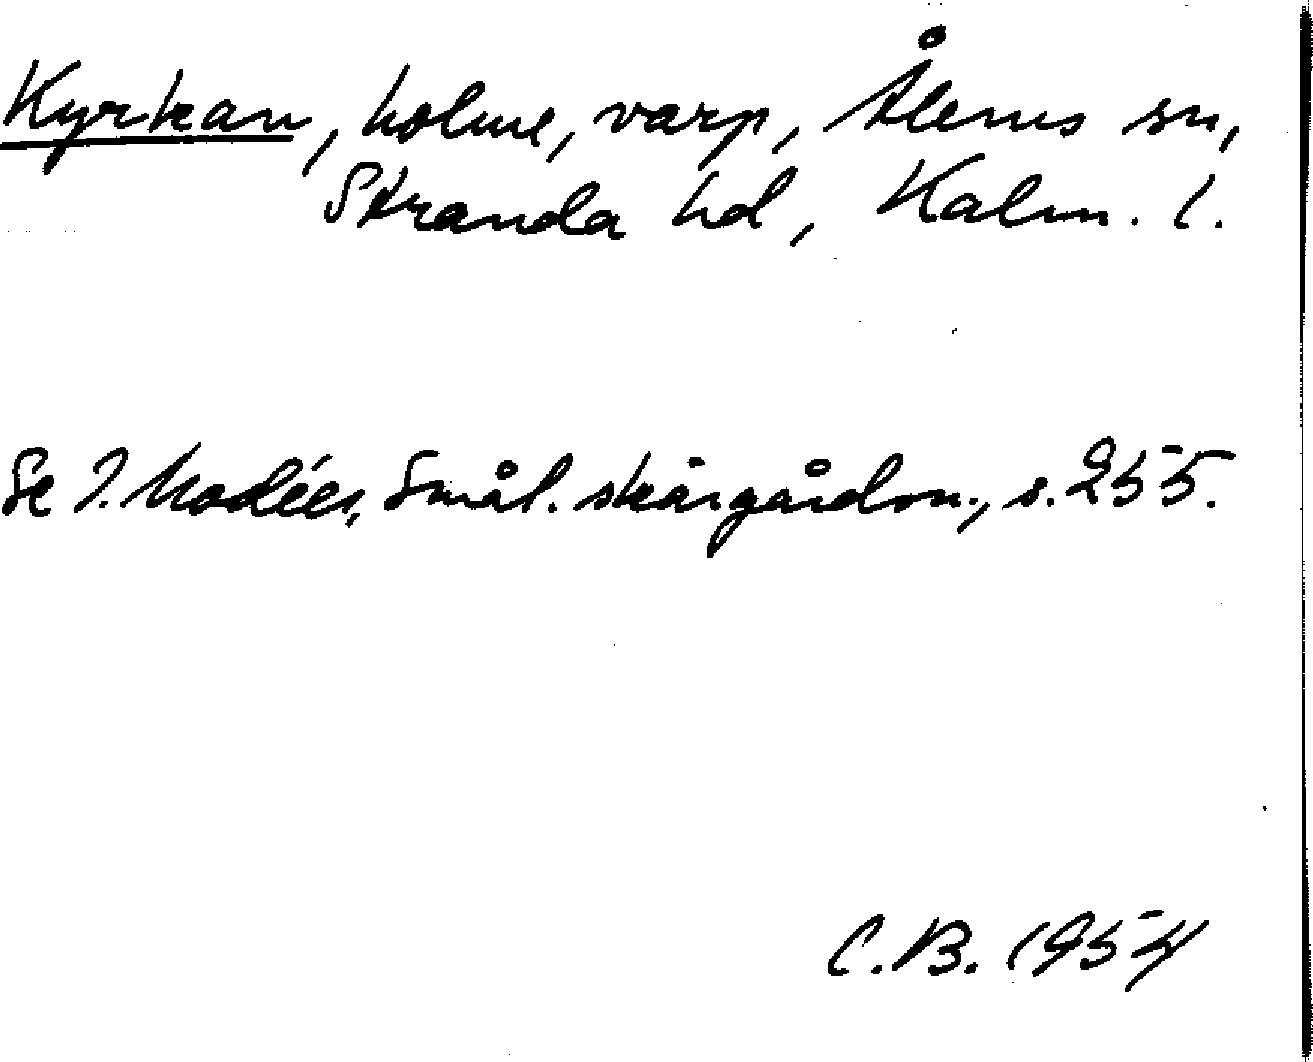 Kyrkan, holme, varp, Ålems sn,
Stranda hd, Kalm. l.
Se I. Modéer, Smål. skärgårdsn., s. 255.
C.B. 1954